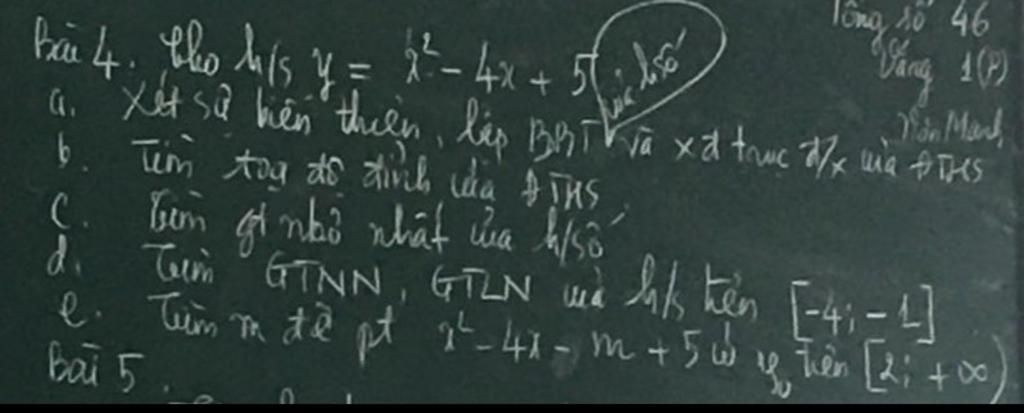 Tổng số 46
Vắng 1(P)
Bài 4. Cho h/s y = x² - 4x + 5
của h số
a. Xét sự biến thiên, lập BBT và xđ trục đ/x của ĐTHS
b. Tìm toạ độ đỉnh của ĐTHS
c. Tìm gt nhỏ nhất của h/số
d. Tìm GTNN, GTLN của h/s trên [-4; -1]
e. Tìm m để pt x² - 4x - m + 5 có trên [2; +∞)
Bài 5.